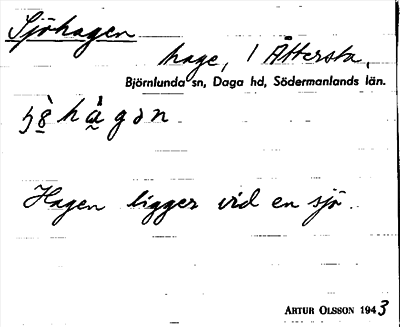 Sjöhagen
hage, / Åttersta,
Björnlunda sn, Daga hd, Södermanlands län.
Hagen ligger vid en sjö.
ARTUR OLSSON 1943